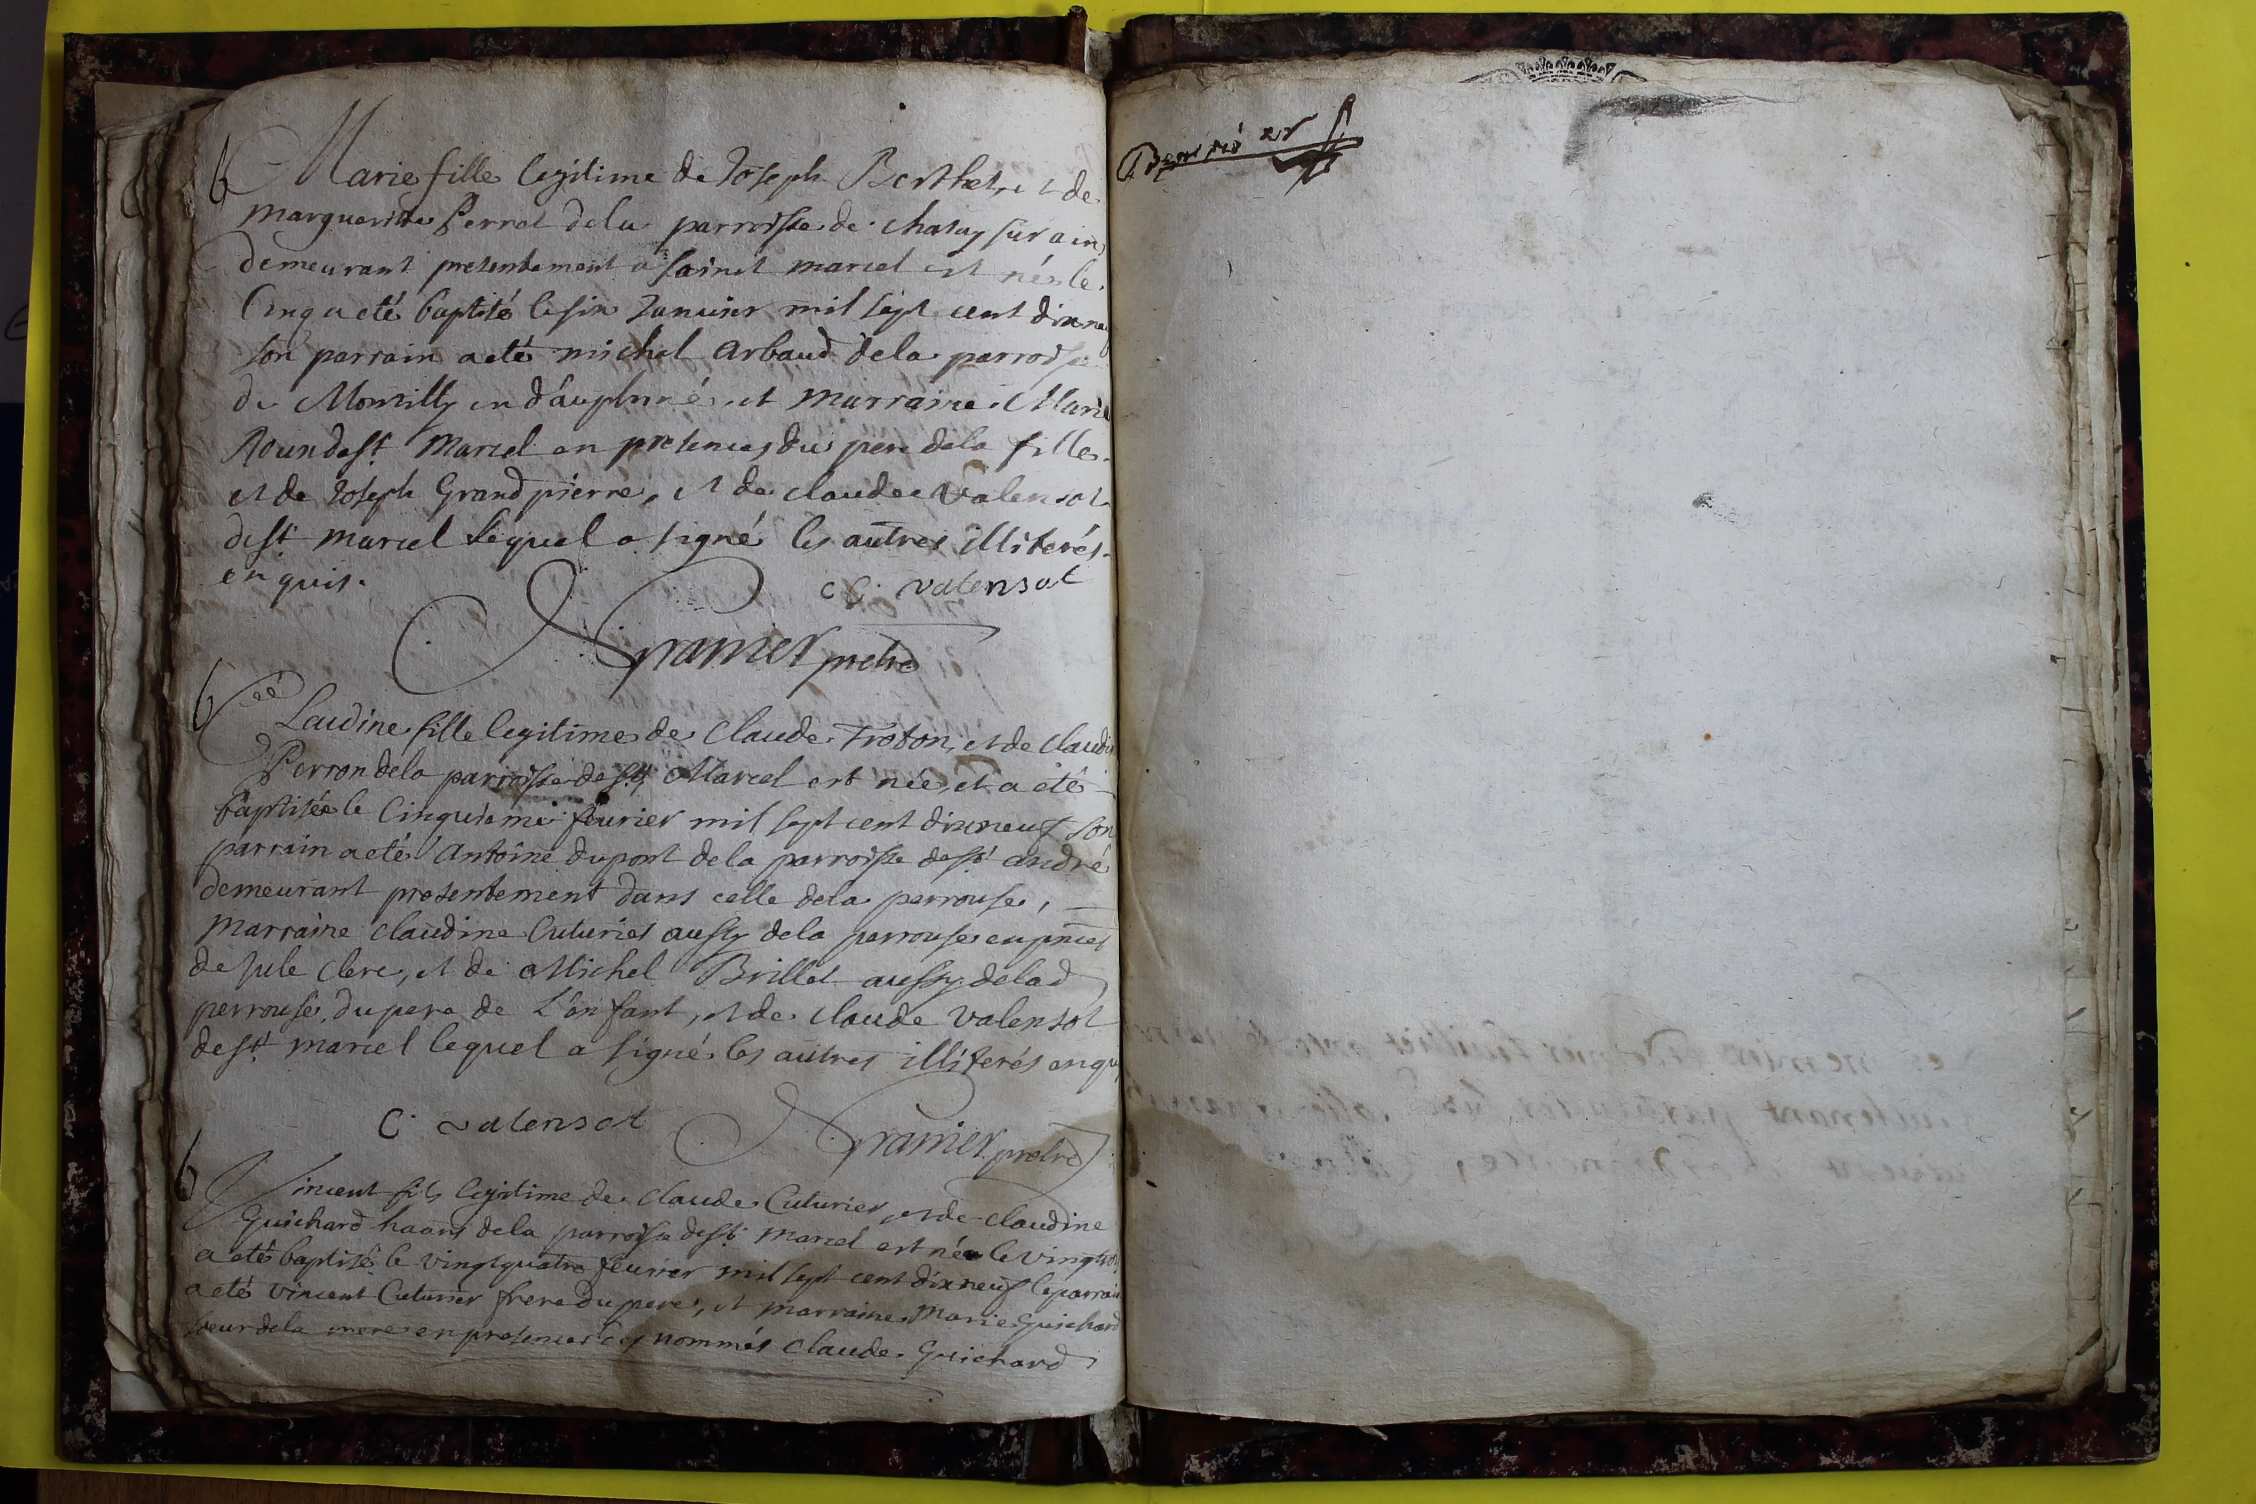 B Marie fille legitime de Joseph Berthet, et de
margueritte Perrot dela parroisse de chatay sur ain,
demeurant presentement a sainct marcel est née le
Cinq a eté baptisé le six Januier mil sept cent dixneuf
son parrain a eté michel arbaud dela parroisse
de Montilly en dauphiné, et marraine Marie
dest. Marcel en presences du pere dela fille
et de Joseph Grandpierre, et de claude Valensot
dest. marcel lequel a signé les autres illiterés
enquis.
C. valensot
pretre
B Claudine fille legitime de claude Frobon, et de claudine
Perron dela parroisse de St Marcel est née, et a eté
baptisée le Cinquieme feurier mil sept cent dixneuf son
parrain a eté Antoine dupont dela parroisse de st. andré
demeurant presentement dans celle dela perrouse,
marraine claudine Cuturier aussy dela perrouse en pnces
de Jule clerc, et de Michel Brillet aussy delad
perrouse, du pere de L'enfant, et de claude valensot
dest. marcel lequel a signé les autres illiterés enquis
C. valensot
pretre
B Vincent fils legitime de claude Cuturier, et de claudine
Guichard dela parroisse de st. marcel est née le vingtrois
a eté baptisé le vingtquatre feurier mil sept cent dixneuf le parrain
a eté vincent Cuturier frere du pere, et marraine Marie Guichard
soeur dela mere en presences des nommés claude Guichard